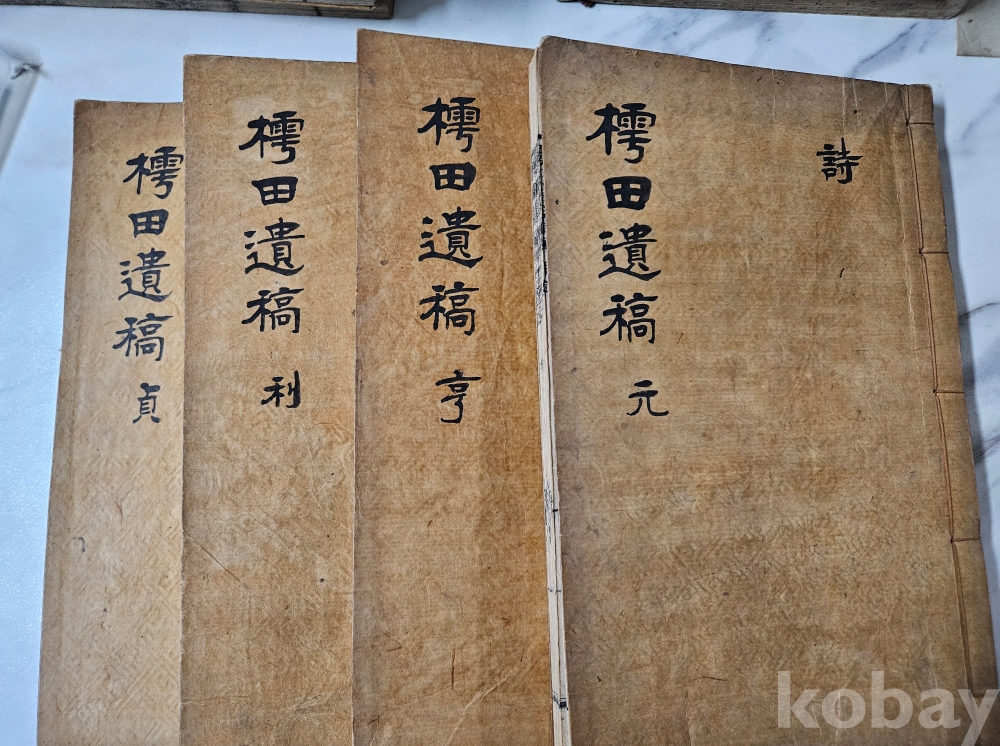 詩
樗田遺稿 元
樗田遺稿 亨
樗田遺稿 利
樗田遺稿 貞
kobay